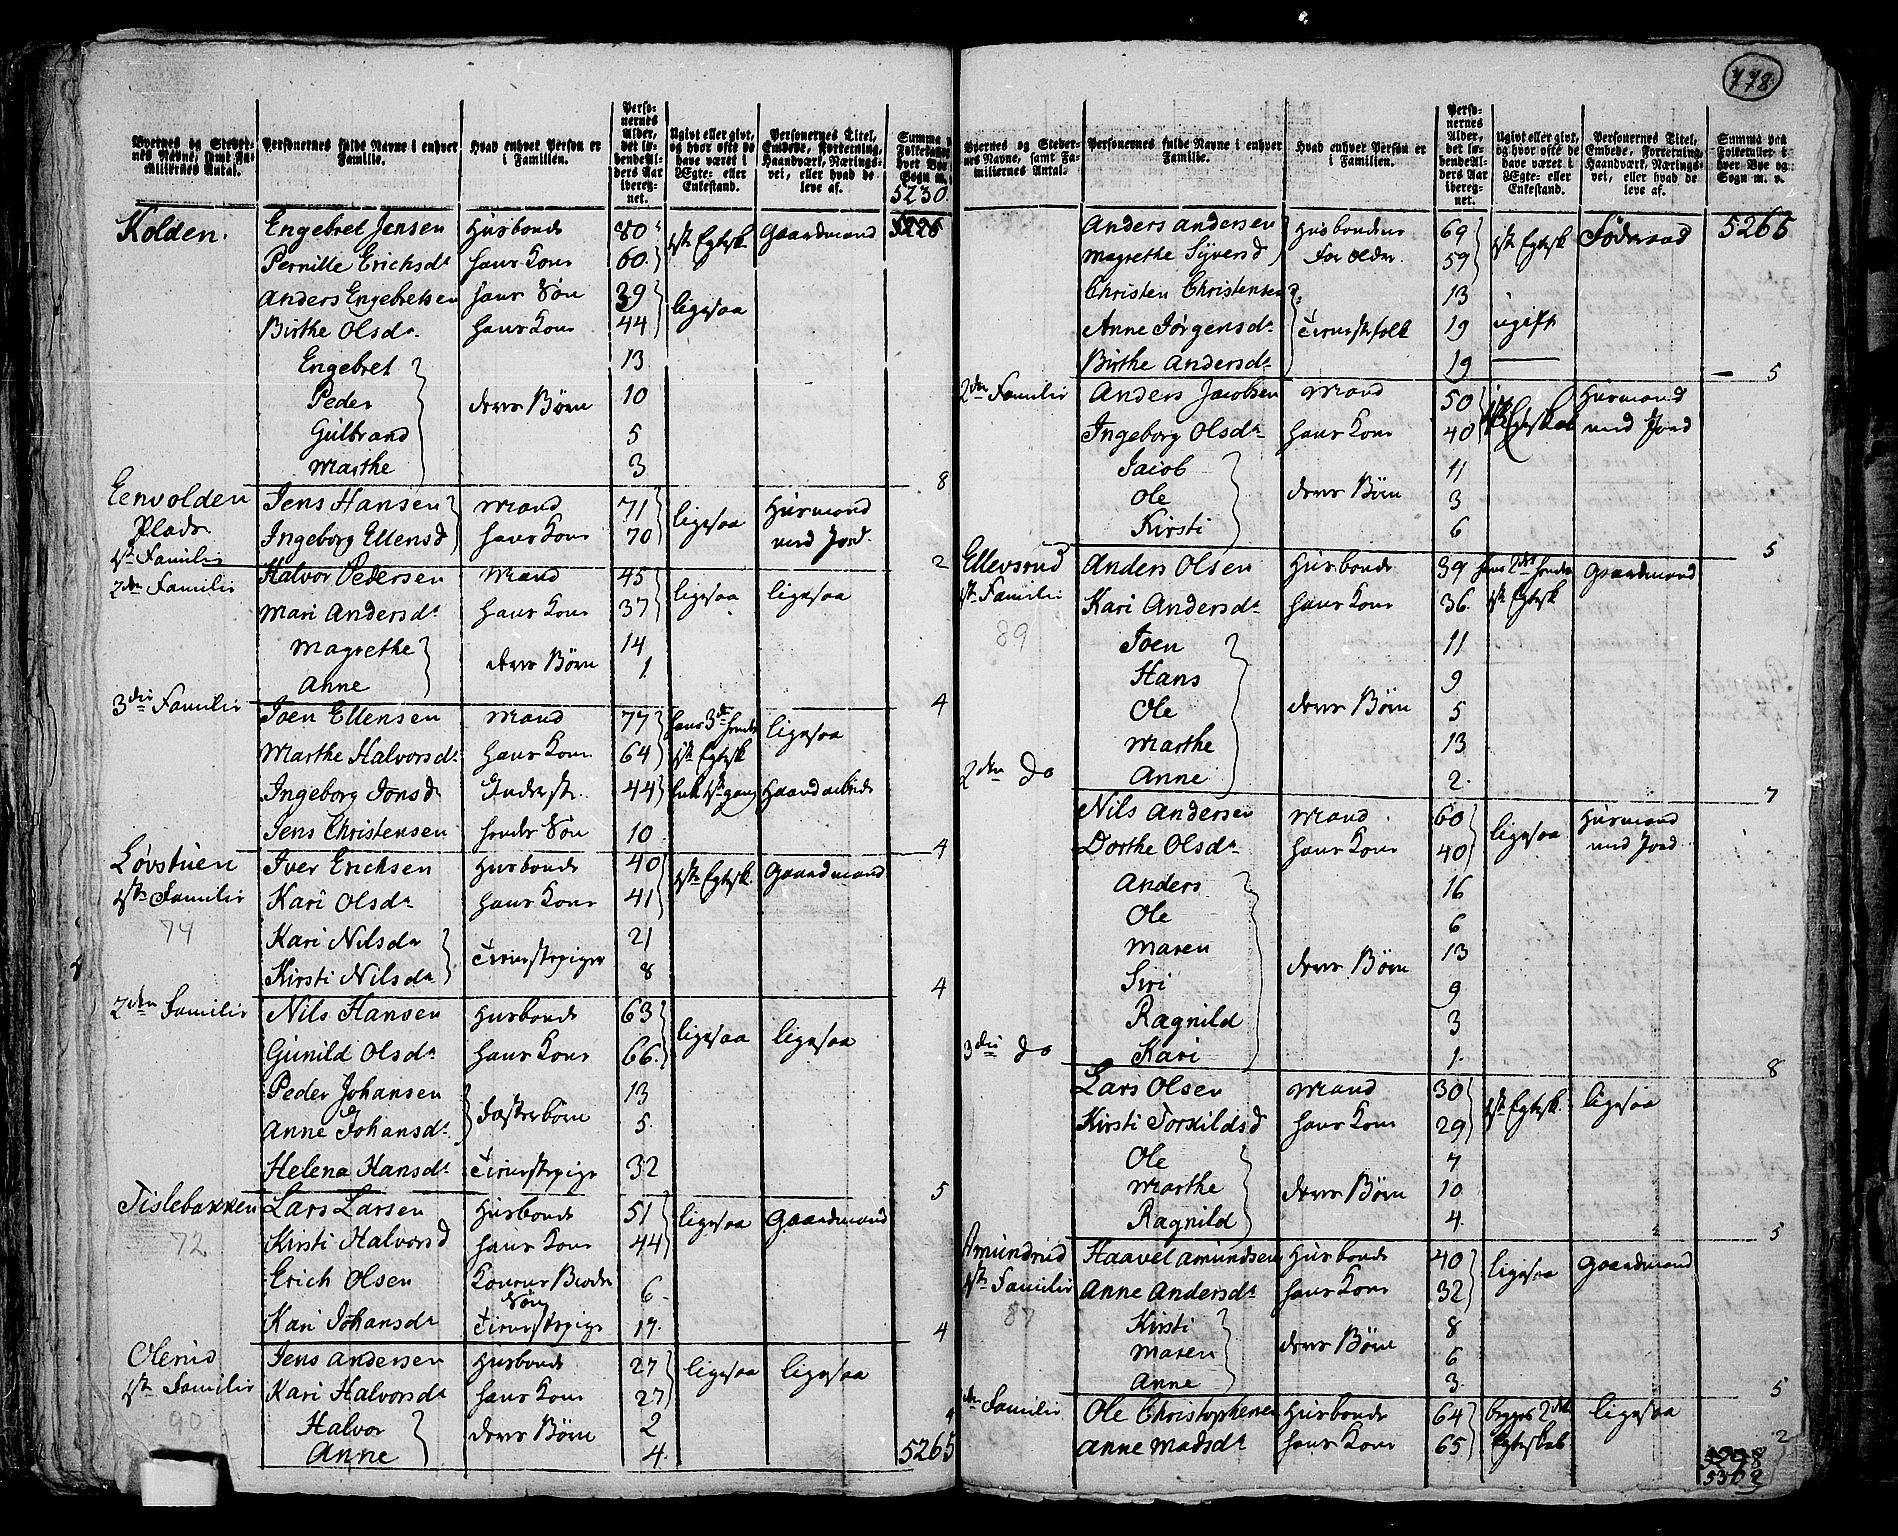 778.
Byernes og Stedernes Navne, samt Familiernes Antal. | Personernes fulde Navne i enhver Familie. | Hvad enhver Person er i Familien. | Personernes Alder, det løbende Alders Aar iberegnet. | Ugivt eller givt, og hvor ofte de have været i Ægte- eller Enkestand. | Personernes Titel, Embede, Forretning, Haandværk, Næringsvei, eller hvad de leve af. | Summa Folketallet hver Bye Sogn m.
5230
Kolden. | Engebret Jensen | Husbonde | 80 | 1ste Egtesk | Gaardmand
Pernille Erichsdr | hans Kone | 60
Anders Engebretsen | hans Søn | 39 | ligesaa
Birthe Olsdr | hans Kone | 44
Engebret | 13
Peder | deres Børn | 10
Gulbrand | 5
Marthe | 3 | 8
Eenvolden Plads 1ste Familie | Jens Hansen | Mand | 71 | ligesaa | Huusmand
Ingeborg Ellensd | hans Kone | 70 | med Jord. | 2
2den Familie | Halvor Pedersen | Mand | 45 | ligesaa | ligesaa
Mari Andersdr | hans Kone | 37
Magrethe | deres Børn | 14
Anne | 1 | 4
3die Familie | Joen Ellensen | Mand | 77 | hans 3die hendes | ligesaa
Marthe Halvorsdr | hans Kone | 64 | 1ste Egtesk
Ingeborg Jonsd | Inderste | 44 | Enk 1ste gang | Haandarbeide
Jens Christensen | hendes Søn | 10 | 4
Løvstuen 1ste Familie | Iver Erichsen | Husbonde | 40 | 1ste Egtesk. | Gaardmand
Kari Olsdr | hans Kone | 41
74 | Kari Nilsdr | Tienestepiger | 21
Kirsti Nilsdr | 8 | 4
2den Familie | Nils Hansen | Husbonde | 63 | ligesaa | ligesaa
Gunild Olsdr | hans Kone | 66
Peder Johansen | Fosterbørn | 13
Anne Johansdr | 5
Helena Hansdr | Tienestepige | 32 | 5
Tislebakken | Lars Larsen | Husbonde | 51 | ligesaa | Gaardmand
72 | Kirsti Halvorsd | hans Kone | 44
Erich Olsen | Konens Broders Søn | 6
Kari Johansdr | Tienestepige | 17. | 4
Olerud 1ste Familie | Jens Andersen | Husbonde | 27 | ligesaa | ligesaa
Kari Halvorsdr | hans Kone | 27
90 | Halvor | deres Børn | 2
Anne | 4. | 4
5265
Byernes og Stedernes Navne, samt Familiernes Antal. | Personernes fulde Navne i enhver Familie. | Hvad enhver Person er i Familien. | Personernes Alder, det løbende Alders Aar iberegnet. | Ugivt eller givt, og hvor ofte de have været i Ægte- eller Enkestand. | Personernes Titel, Embede, Forretning, Haandværk, Næringsvei, eller hvad de leve af. | Summa paa Folketallet i hver Bye og Sogn m. v.
Anders Andersen | Husbondens | 69 | 1ste Egtesk | Føderaad | 5265
Magrethe Syversd | Forældre. | 59
Christen Christensen | 13
Anne Jørgensdr | Tienestefolk | 19 | ugift
Birthe Andersdr | 19 | — | 5
2den Familie | Anders Jacobsen | Mand | 50 | Egteskab | Huusmand
Ingeborg Olsdr | hans Kone | 40 | med Jord
Jacob | 11
Ole | deres Børn | 3
Kirsti | 6 | 5
Ellevsrud 1ste Familie | Anders Olsen | Husbonde | 39 | hans 2det hendes | Gaardmand
Kari Andersdr | hans Kone | 36. | 1ste Egtesk
89 | Joen | 11
Hans | 9
Ole | deres Børn | 5
Marthe | 13
Anne | 2. | 7
2den Do | Nils Andersen | Mand | 60 | ligesaa | Huusmand
Dorthe Olsdr | hans Kone | 40 | med Jord.
Anders | 16
Ole | 6
Maren | 13
Siri | deres Børn | 9
Ragnild | 3
Kari | 1. | 8
3die Do | Lars Olsen | Mand | 30 | 1ste Egtesk. | ligesaa
Kirsti Torkildsd | hans Kone | 29
Ole | 7
Marthe | deres Børn | 10
Ragnild | 4. | 5
Amundrud 1ste Familie | Haavel Amundsen | Husbonde | 40 | ligesaa | Gaardmand
Anne Andersdr | hans Kone | 32
87 | Kirsti | 8
Maren | deres Børn | 6
Anne | 3 | 5
den Familie | Ole Christophersen | Husbonde | 64 | begges 2det | ligesaa
Anne Madsdr | hans Kone | 65 | Egteskab | 2
5302